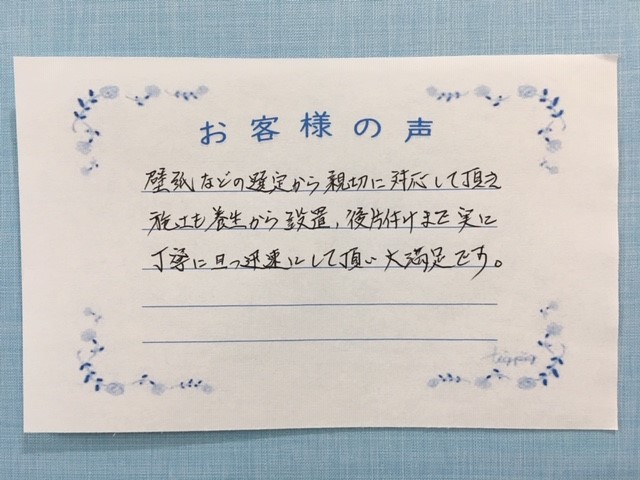 お客様の声
壁紙などの選定から親切に対応して頂き
施工も養生から設置、後片付けまで実に
丁寧に且つ迅速にして頂い大満足です。